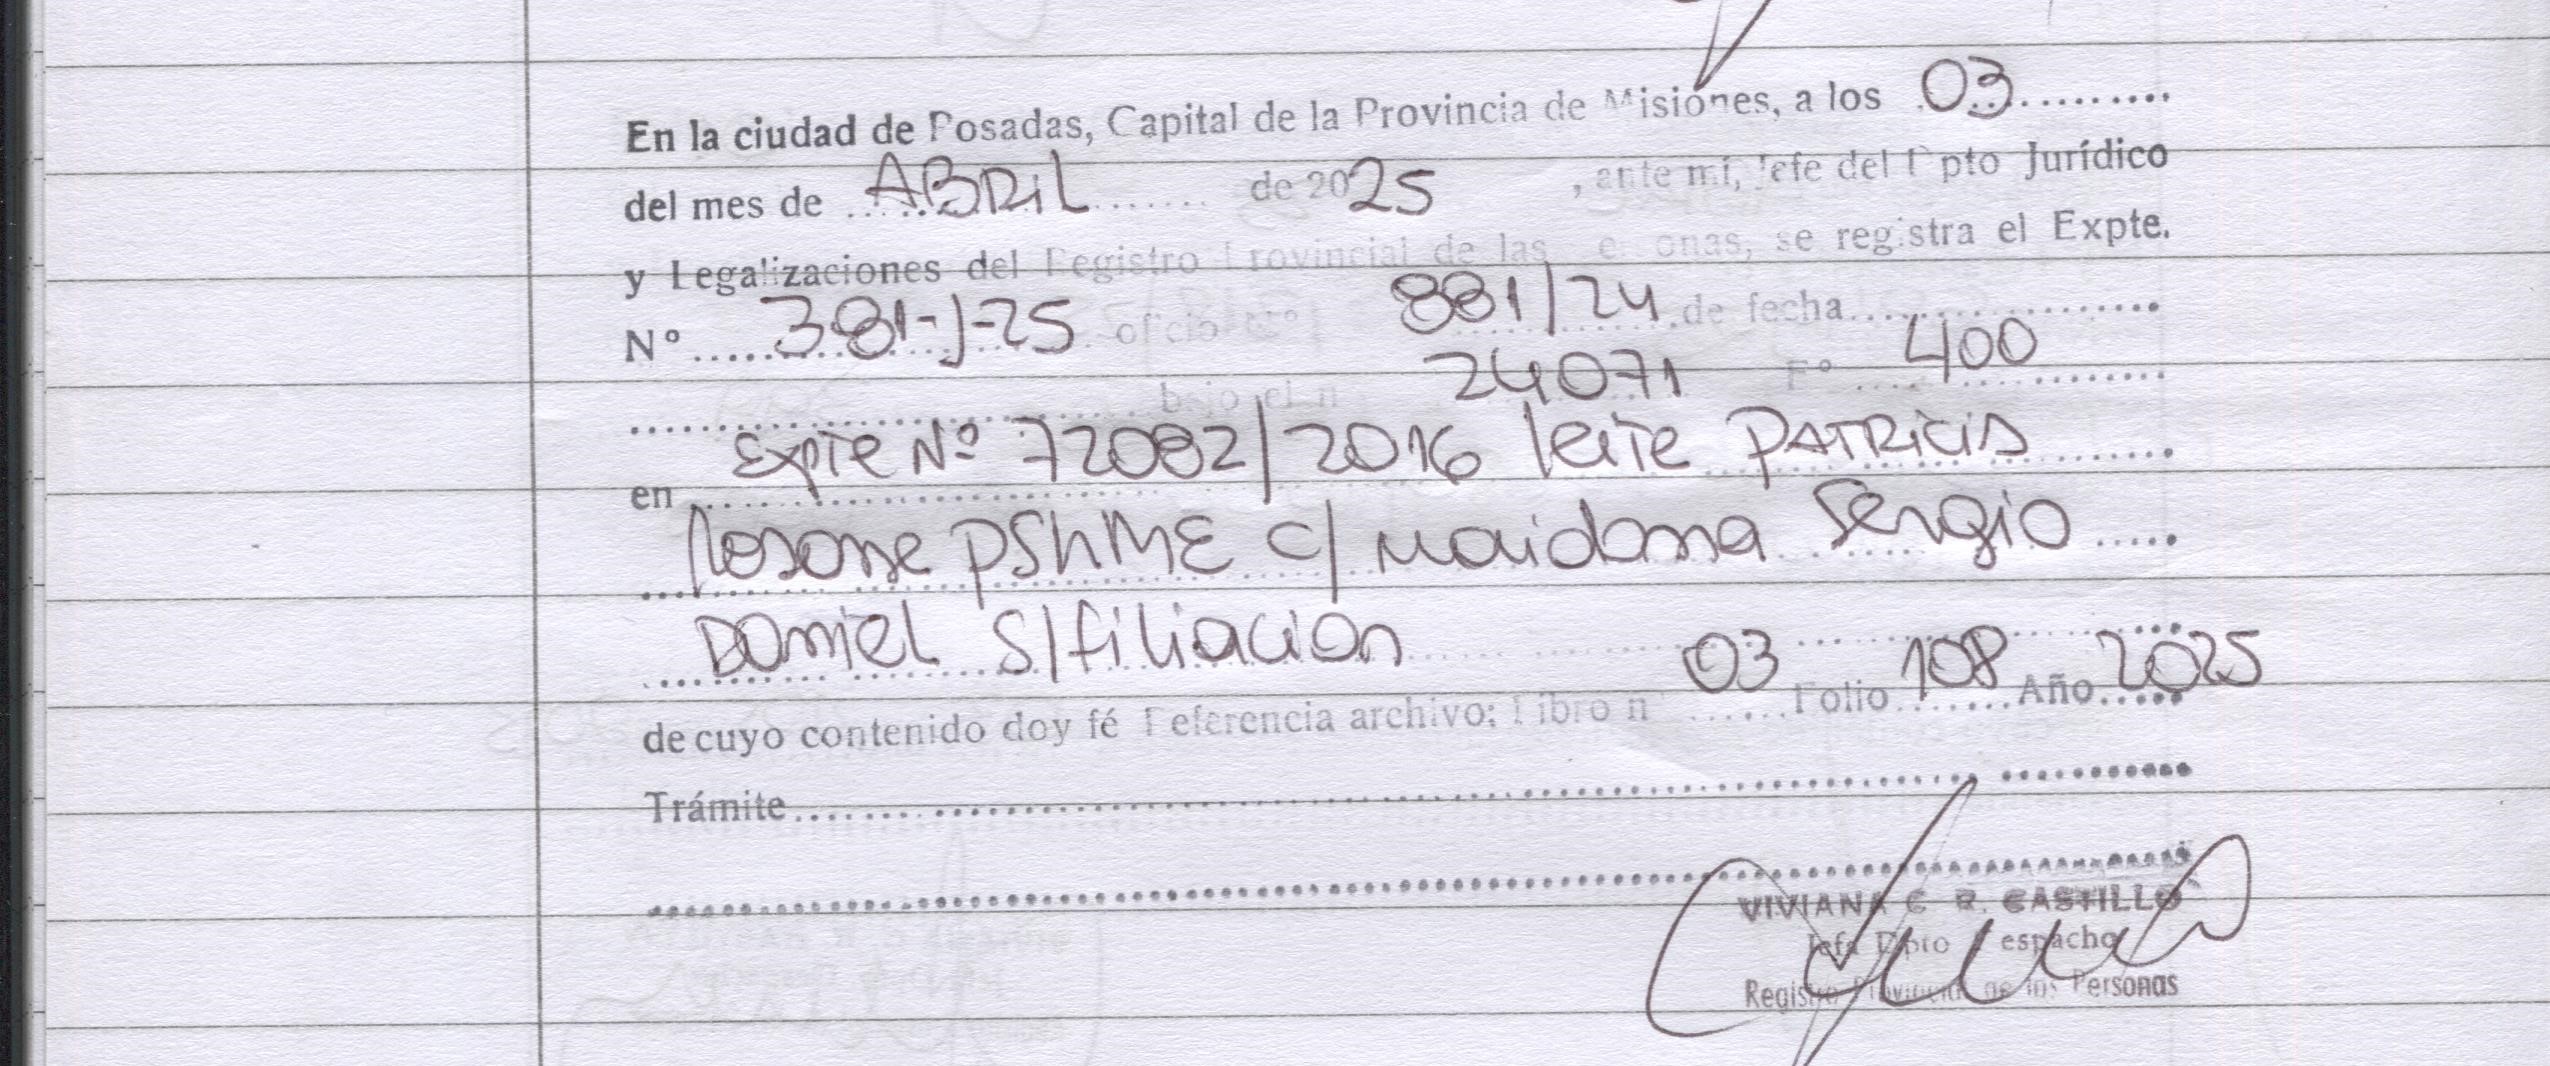 En la ciudad de Posadas, Capital de la Provincia de Misiones, a los 03
del mes de ABRIL de 2025, ante mí, Jefe del Dpto Jurídico
y Legalizaciones del Registro Provincial de las Personas, se registra el Expte.
Nº 381-J-25 oficio Nº 881/24 de fecha
bajo el n 24071 Fº 400
en Expte Nº 72082/2016 leite PATRICIA
c/ Maidana Sergio
Daniel S/filiación
de cuyo contenido doy fé Referencia archivo: Libro n 03 Folio 108 Año 2025
Trámite
VIVIANA C R. CASTILLO
Jefa Dpto Despacho
Registro Provincial de las Personas